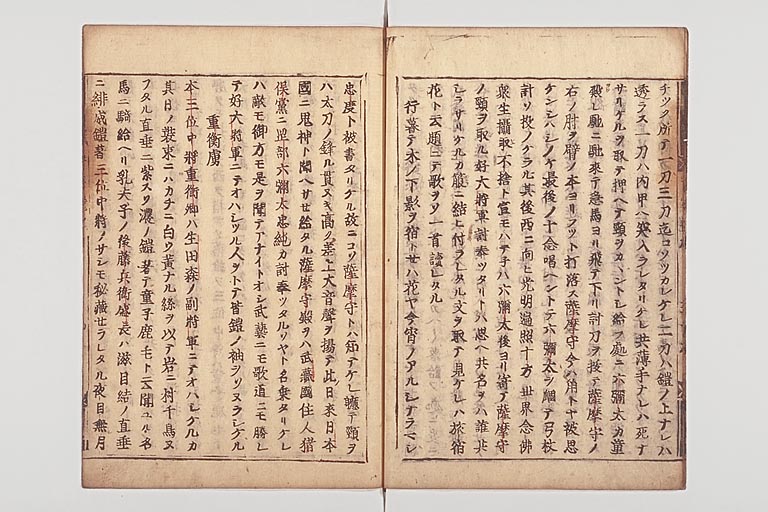 チツク所テ一刀三刀迄コソツカレケレ二刀ハ鎧ノ上ナレハ
透ラス一刀ハ内甲ヘ突入ラレタリケレ共薄手ナレハ死ナ
サリケルヲ取テ押ヘテ頸ヲカヽントシ給フ處ニ六彌太カ童
殿レ馳ニ馳來テ急馬ヨリ飛テ下リ討刀ヲ抜テ薩摩守ノ
右ノ肘ヲ臂ノ本ヨリフツト打落ス薩摩守今ハ角トヤ被思
ケンシハシノケ最後ノ十念唱ヘントテ六彌太ヲ綱テ弓杖
計ソ投ノケラル其後西ニ向ヒ光明遍照十方世界念佛
衆生攝取不捨ト宣モハテネハ六彌太後ヨリ寄テ薩摩守
ノ頸ヲ取ル好大將軍討奉ツタリトハ思ヘ共名ヲハ誰共
シラサリケルカ箙ニ結ヒ付ラレタル文ヲ取テ見ケレハ旅宿
花ト云題ニテ歌ヲソ一首讀レタル
行暮テ木ノ下影ヲ宿トセハ花ヤ今宵ノアルシナラマシ
忠度ト被書タリケル故ニコソ薩摩守トハ知テケレ軈テ頸ヲ
ハ太刀ノ鋒ニ貫ヌキ高ク差上大音聲ヲ揚テ此日來日本
國ニ鬼神ト聞ヘサセ給タル薩摩守殿ヲハ武藏國住人猪
俣黨ニ岡部六彌太忠純カ討奉ツタルソヤト名乗タリケレ
ハ敵モ御方モ是ヲ聞テアナイトオシ武藝ニモ歌道ニモ勝レ
テ好大將軍ニテオハシツル人ヲトテ皆鎧ノ袖ヲソヌラシケル
重衡虜
本三位中將重衡卿ハ生田森ノ副將軍ニテオハシケルカ
其日ノ裝束ニハカチニ白ウ黄ナル絲ヲ以テ岩ニ村千鳥ヌ
フタル直垂ニ紫スソ濃ノ鎧著テ童子鹿毛ト云聞ユル名
馬ニ騎給ヘリ乳夫子ノ後藤兵衛盛長ハ滋目結ノ直垂
ニ緋威鎧著三位中將ノサシモ秘藏セラレタル夜目無月